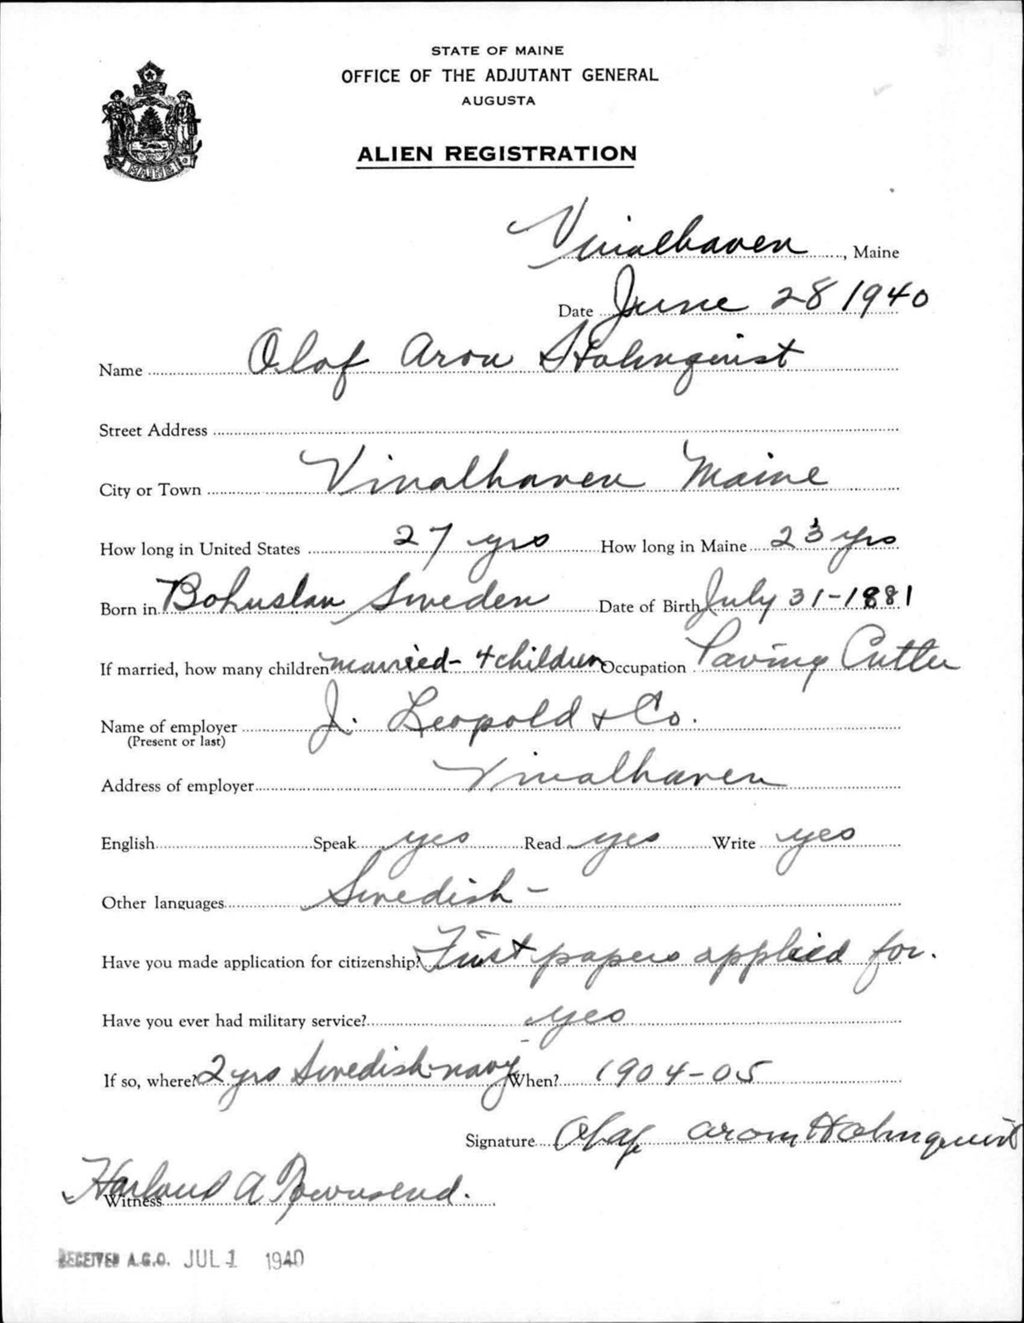 STATE OF MAINE
OFFICE OF THE ADJUTANT GENERAL
AUGUSTA
ALIEN REGISTRATION
MAINE
Vinalhaven, Maine
Date June 28 1940
Name Olaf Aron Holmquist
Street Address
City or Town Vinalhaven Maine
How long in United States 27 yrs How long in Maine 23 yrs
Born in Bohuslan Sweden Date of Birth July 31-1881
If married, how many children married - 4 children Occupation Paving Cutter
Name of employer J. Leopold & Co.
(Present or last)
Address of employer Vinalhaven
English Speak yes Read yes Write yes
Other languages Swedish -
Have you made application for citizenship? First papers applied for.
Have you ever had military service? yes
If so, where? 2 yrs Swedish navy When? 1904-05
Signature Olaf Aron Holmquist
Harland A Townsend.
Witness
RECEIVED A.G.O. JUL 1 1940